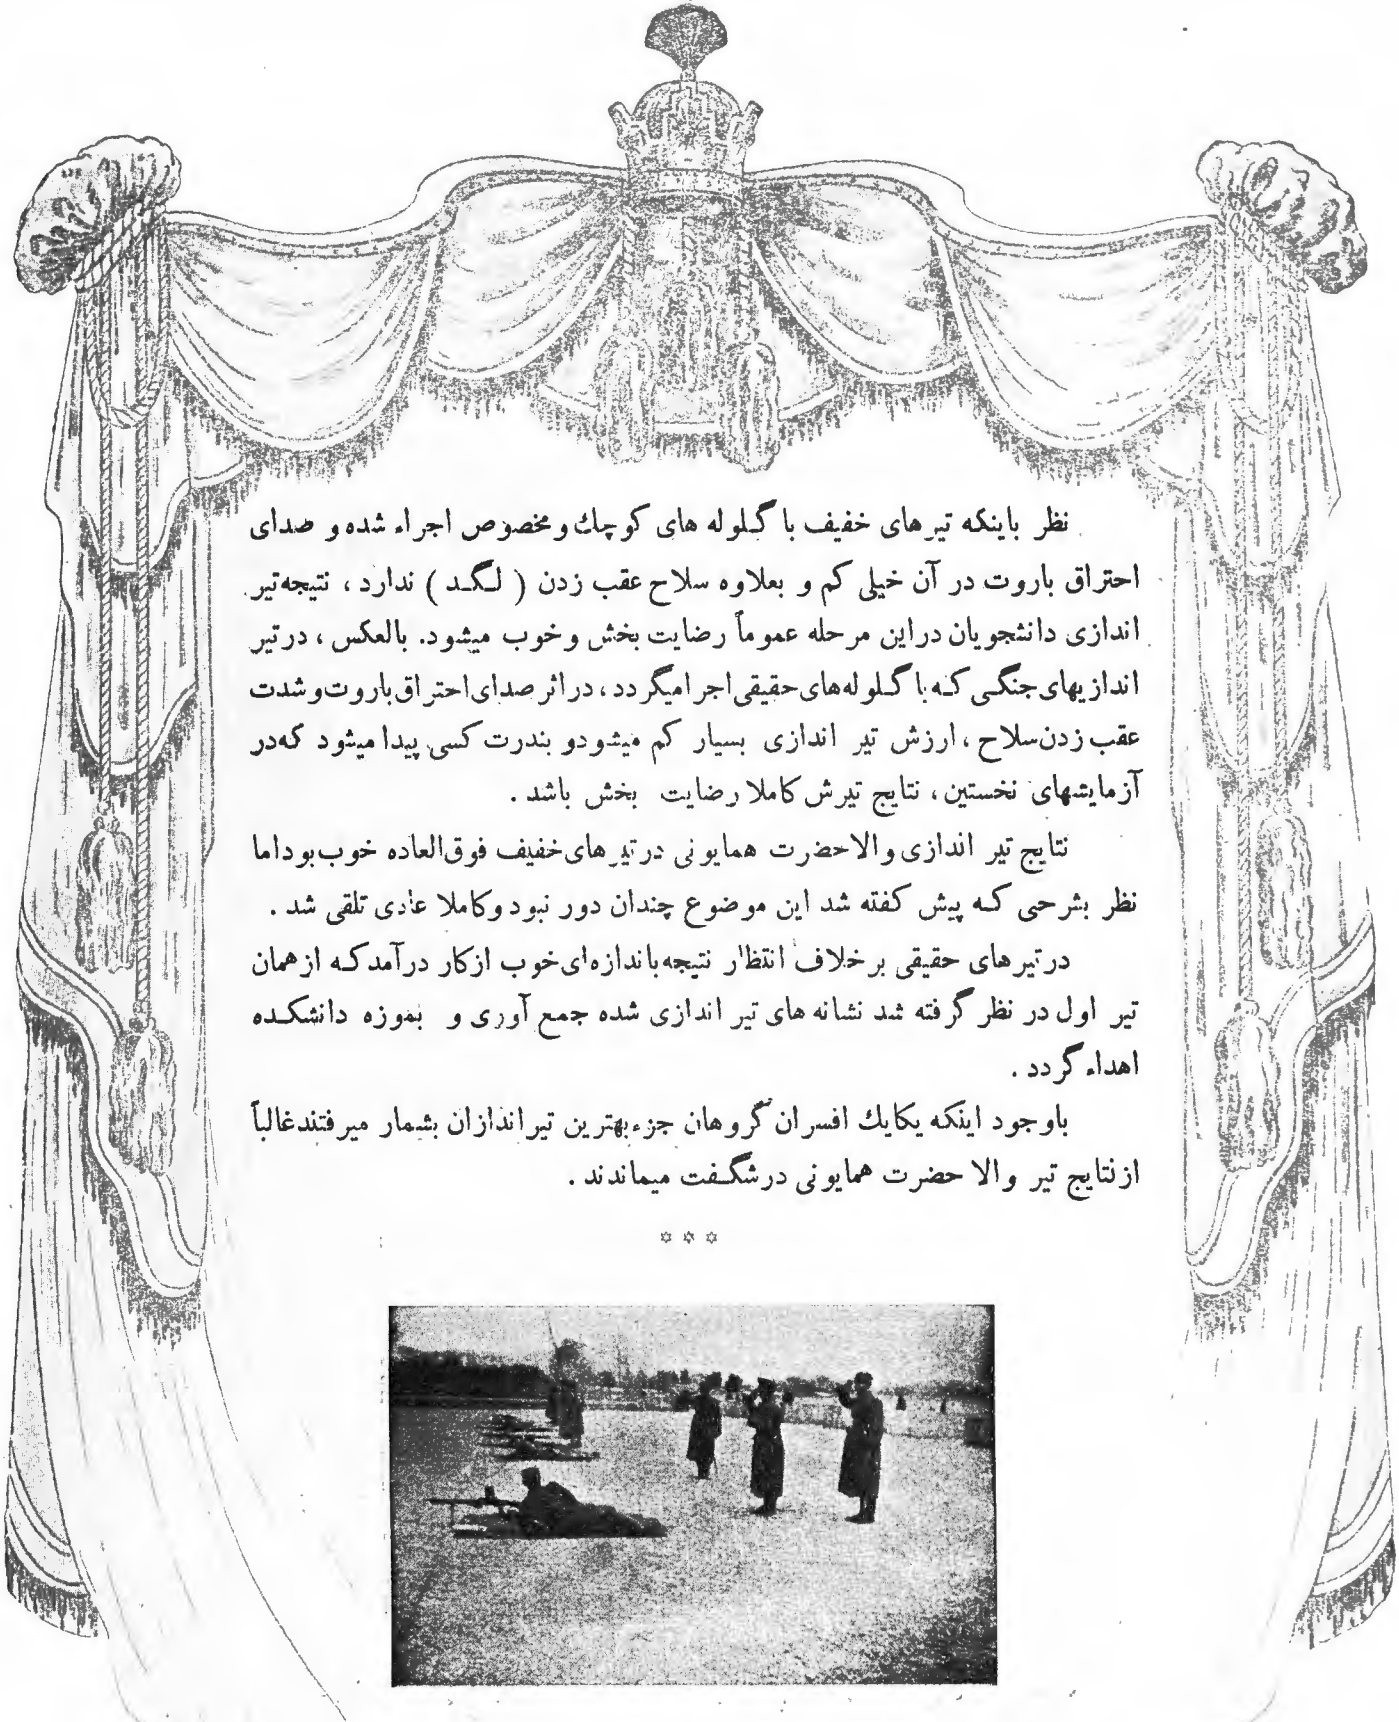 نظر باینکه تیرهای خفیف با گلوله های کوچك و مخصوص اجراء شده و صدای
احتراق باروت در آن خیلی کم و بعلاوه سلاح عقب زدن ( لگد ) ندارد ، نتیجه تیر
اندازی دانشجویان دراین مرحله عموماً رضایت بخش و خوب میشود. بالعکس ، در تیر
اندازیهای جنگی که با گلوله‌های حقیقی اجرا میگردد ، در اثر صدای احتراق باروت و شدت
عقب زدن سلاح ، ارزش تیر اندازی بسیار کم میشود و بندرت کسی پیدا میشود که در
آزمایشهای نخستین ، نتایج تیرش کاملا رضایت بخش باشد .
نتایج تیر اندازی والاحضرت همایونی در تیرهای خفیف فوق‌العاده خوب بود اما
نظر بشرحی که پیش کفته شد این موضوع چندان دور نبود و کاملا عادی تلقی شد .
در تیرهای حقیقی بر خلاف انتظار نتیجه باندازه‌ای خوب از کار در آمد که از همان
تیر اول در نظر گرفته شد نشانه های تیر اندازی شده جمع آوری و بموزه دانشکده
اهداء گردد .
باوجود اینکه یکایك افسران گروهان جزء بهترین تیراندازان بشمار میرفتند غالباً
از نتایج تیر والا حضرت همایونی در شگفت میماندند .
✡ ✡ ✡